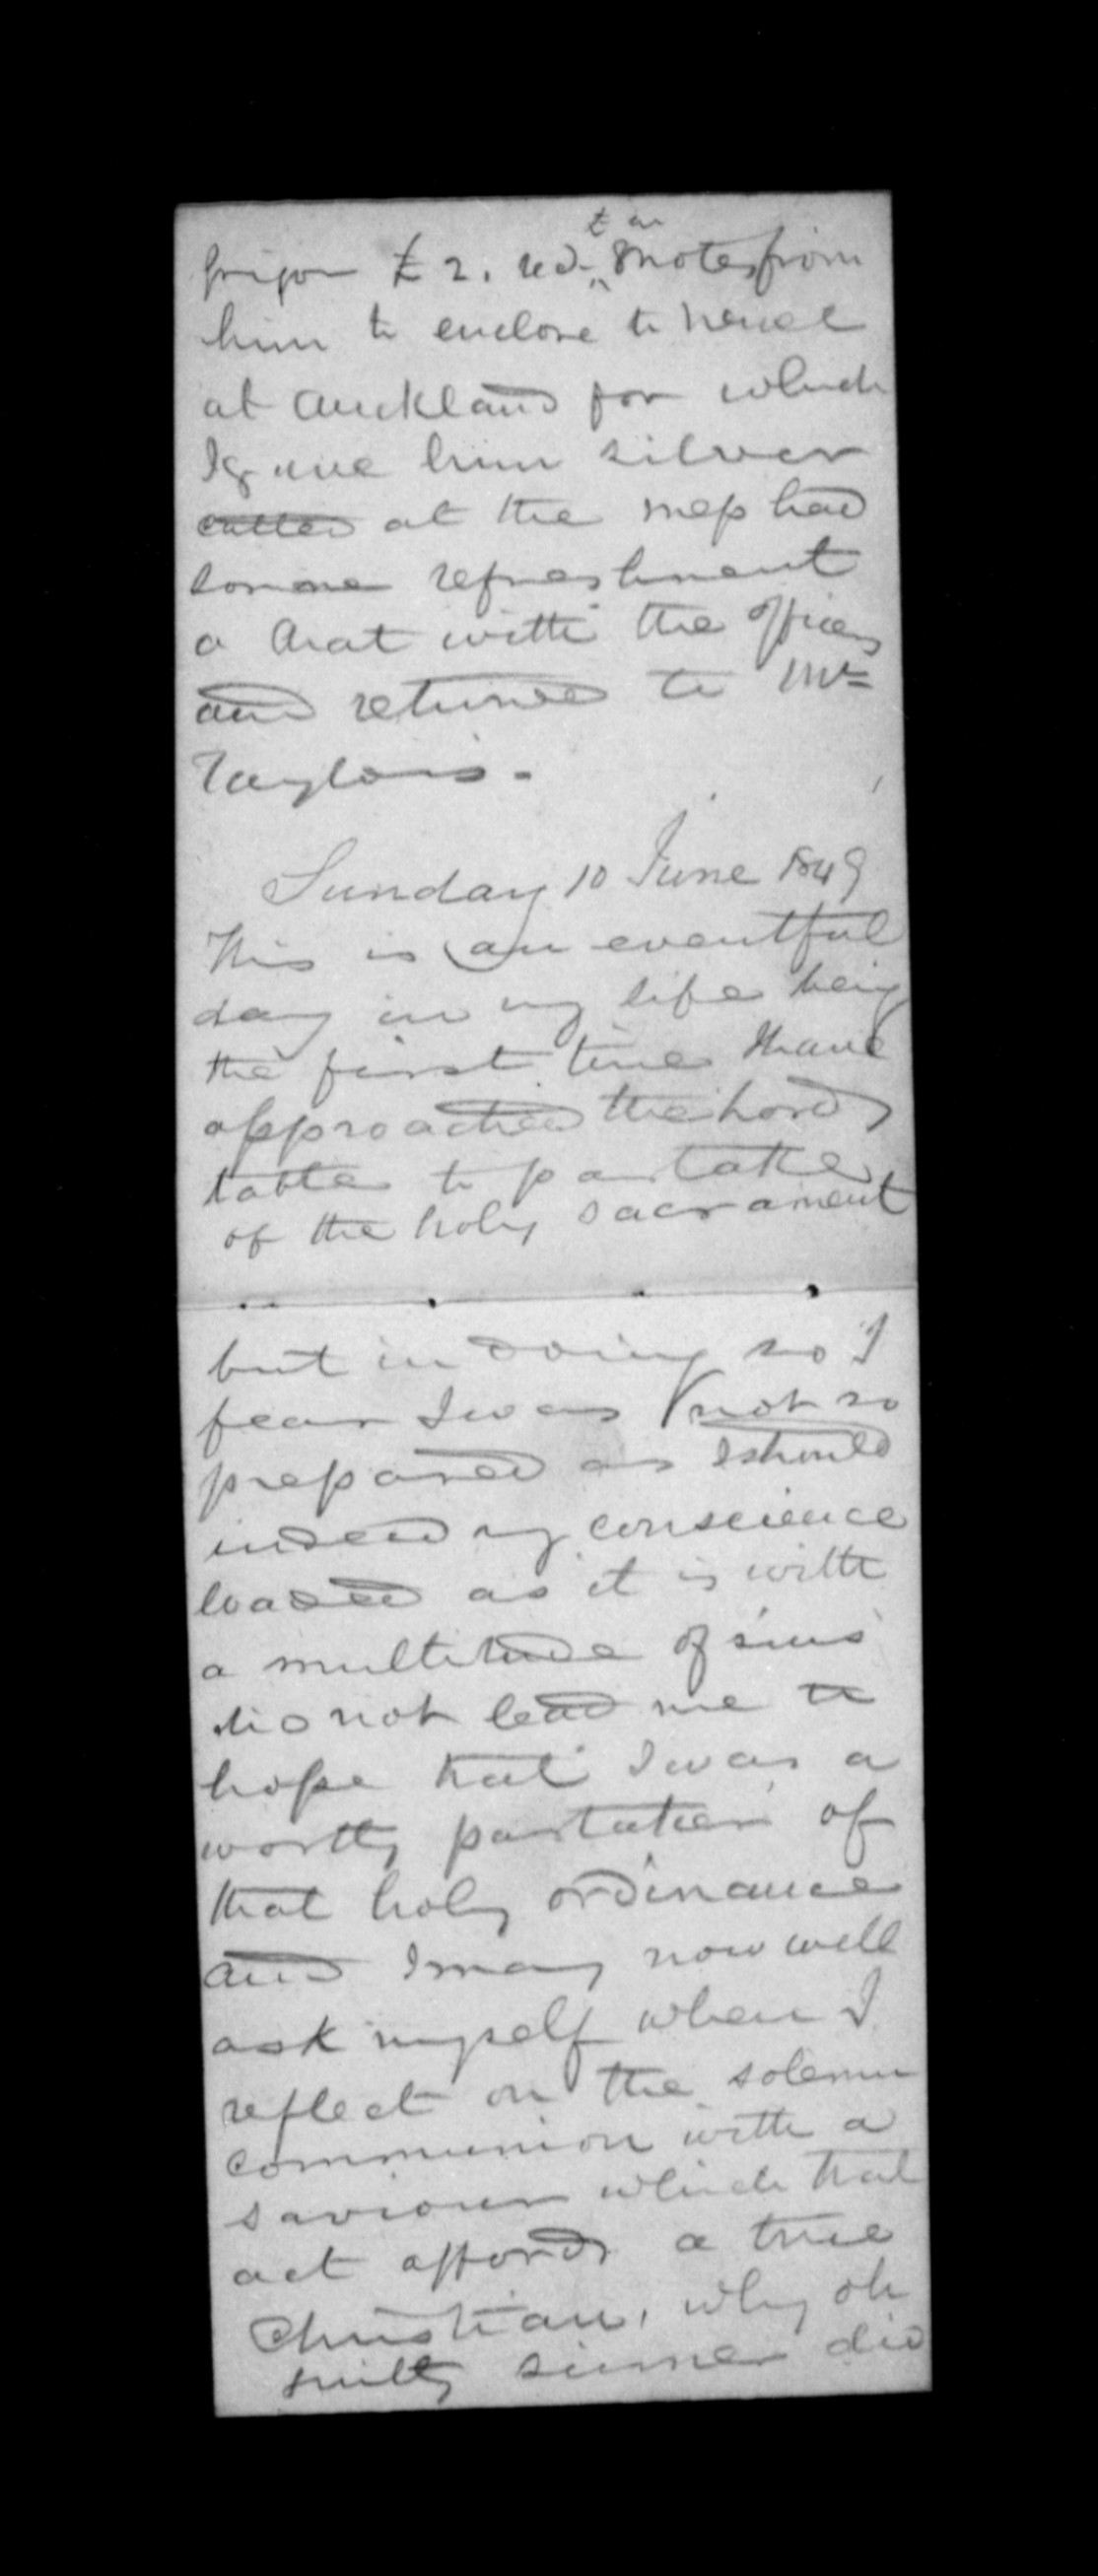 £2. red. notes from
him to enclose to
at Auckland for which
I gave him silver
called at the mess had
some refreshment
a chat with the officers
and returned to Mr
Taylors.
Sunday 10 June 1849
This is an eventful
day in my life being
the first time I have
approached the Lords
table to partake
of the holy sacrament
but in doing so I
fear I was not so
prepared as I should
indeed my conscience
loaded as it is with
a multitude of sins
did not lead me to
hope that I was a
worthy partaker of
that holy ordinance
and I may now well
ask myself when I
reflect on the solemn
communion with a
saviour which that
act affords a true
Christian, why oh
guilty sinner did